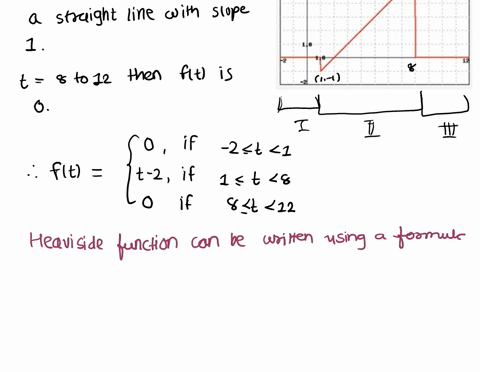 a straight line with slope
1.
t = 8 to 12 then f(t) is
0.
1.0
-2 1.0 8 12
-2 (1,-1)
I II III
∴ f(t) = { 0, if -2 ≤ t < 1
t-2, if 1 ≤ t < 8
0 if 8 ≤ t < 12
Heaviside function can be written using a formula